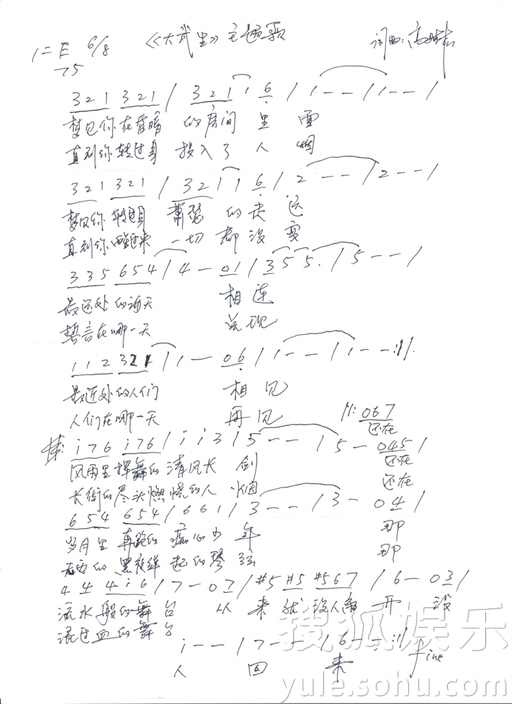 1=E 6/8 《大武生》主题歌 词曲:高晓松
75
321 321 / 321 1 6 / 1 - - / 1 - - /
梦见你在昏暗 的房间 里 面
直到你转过身 投入了 人 间
321 321 / 321 1 6 / 2 - - / 2 - - /
梦见你 的走 远
直到你 一切 都没 变
335 654 / 4 - 01 / 3 5 5. / 5 - - /
最远处的访天 相连
誓言在哪一天 兑现
112 321 / 1 - 06 / 1 - - / 1 - - :||
最近处的人们 相见
人们在哪一天 再见
||: 067
还在
i76 i76 / i i 3 / 5 - - / 5 - 045 /
风雨里挥舞的 清风长 剑 还在
长街的尽头燃烧的人 烟 还在
654 654 / 661 / 3 - - / 3 - 04 /
岁月里 奔跑的 痴心少 年 那
无边的 黑夜 起的琴 弦 那
44 4i6 / 7 - 03 / #5 #5 #567 / 6 - 03 /
流水般的舞台 从 来就没人能 开 没
流过血的舞台
i - - / 7 - - / 6 - - :|| Fine
人 回 来
搜狐娱乐
yule.sohu.com